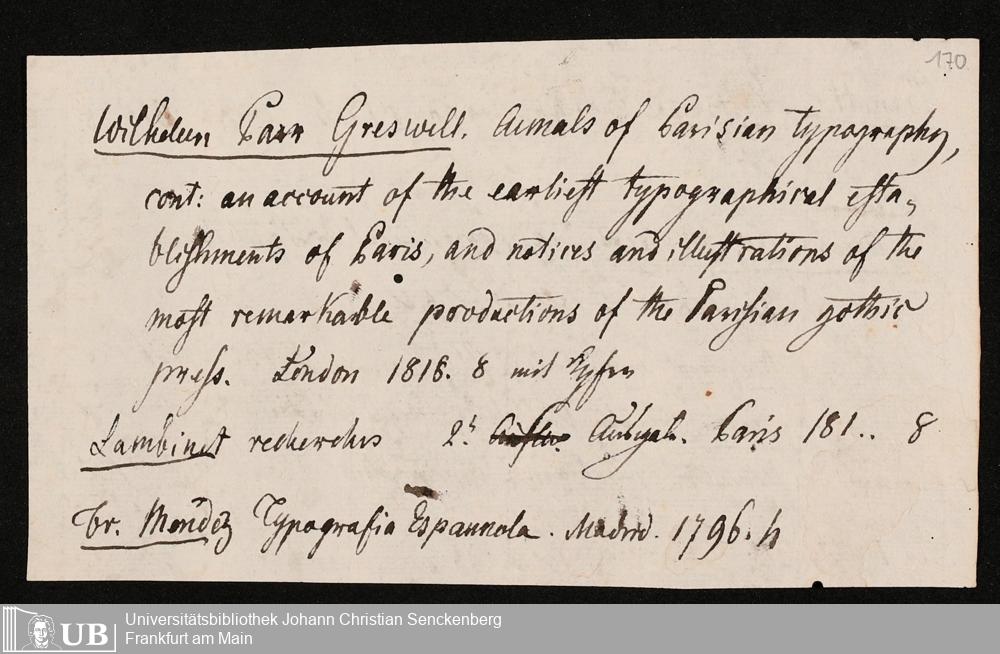 170
Wilhelm Parr Greswell. Annals of Parisian typography,
cont: an account of the earliest typographical esta„
blishments of Paris, and notices and illustrations of the
most remarkable productions of the Parisian gothic
press. London 1818. 8 mit Kpfrn
Lambinet recherches 2t Aufla. Ausgab. Paris 181.. 8
Fr. Mendez Typografia Espannola. Madrid. 1796. 4
UB Universitätsbibliothek Johann Christian Senckenberg
Frankfurt am Main